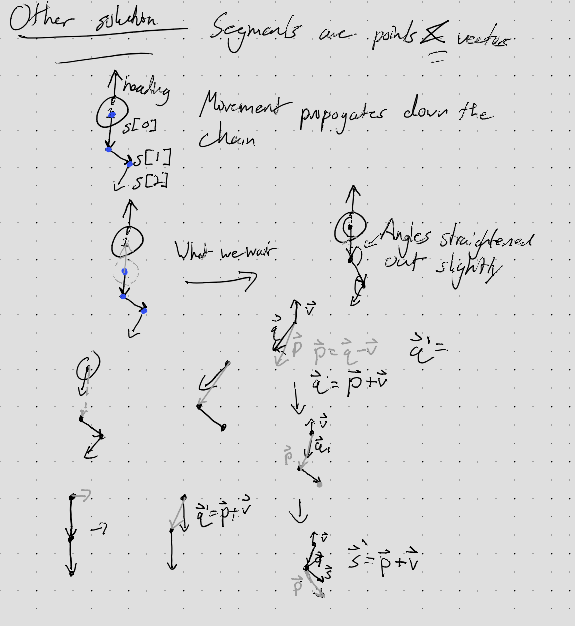 Other solution
Segments are points & vectors
heading
s[0]
s[1]
s[2]
Movement propogates down the
chain
What we want
Angles straightened
out slightly
v
q
p
p = q - v
q' =
q' = p + v
v
q'
p
q' = p + v
v
q
s
p
s' = p + v